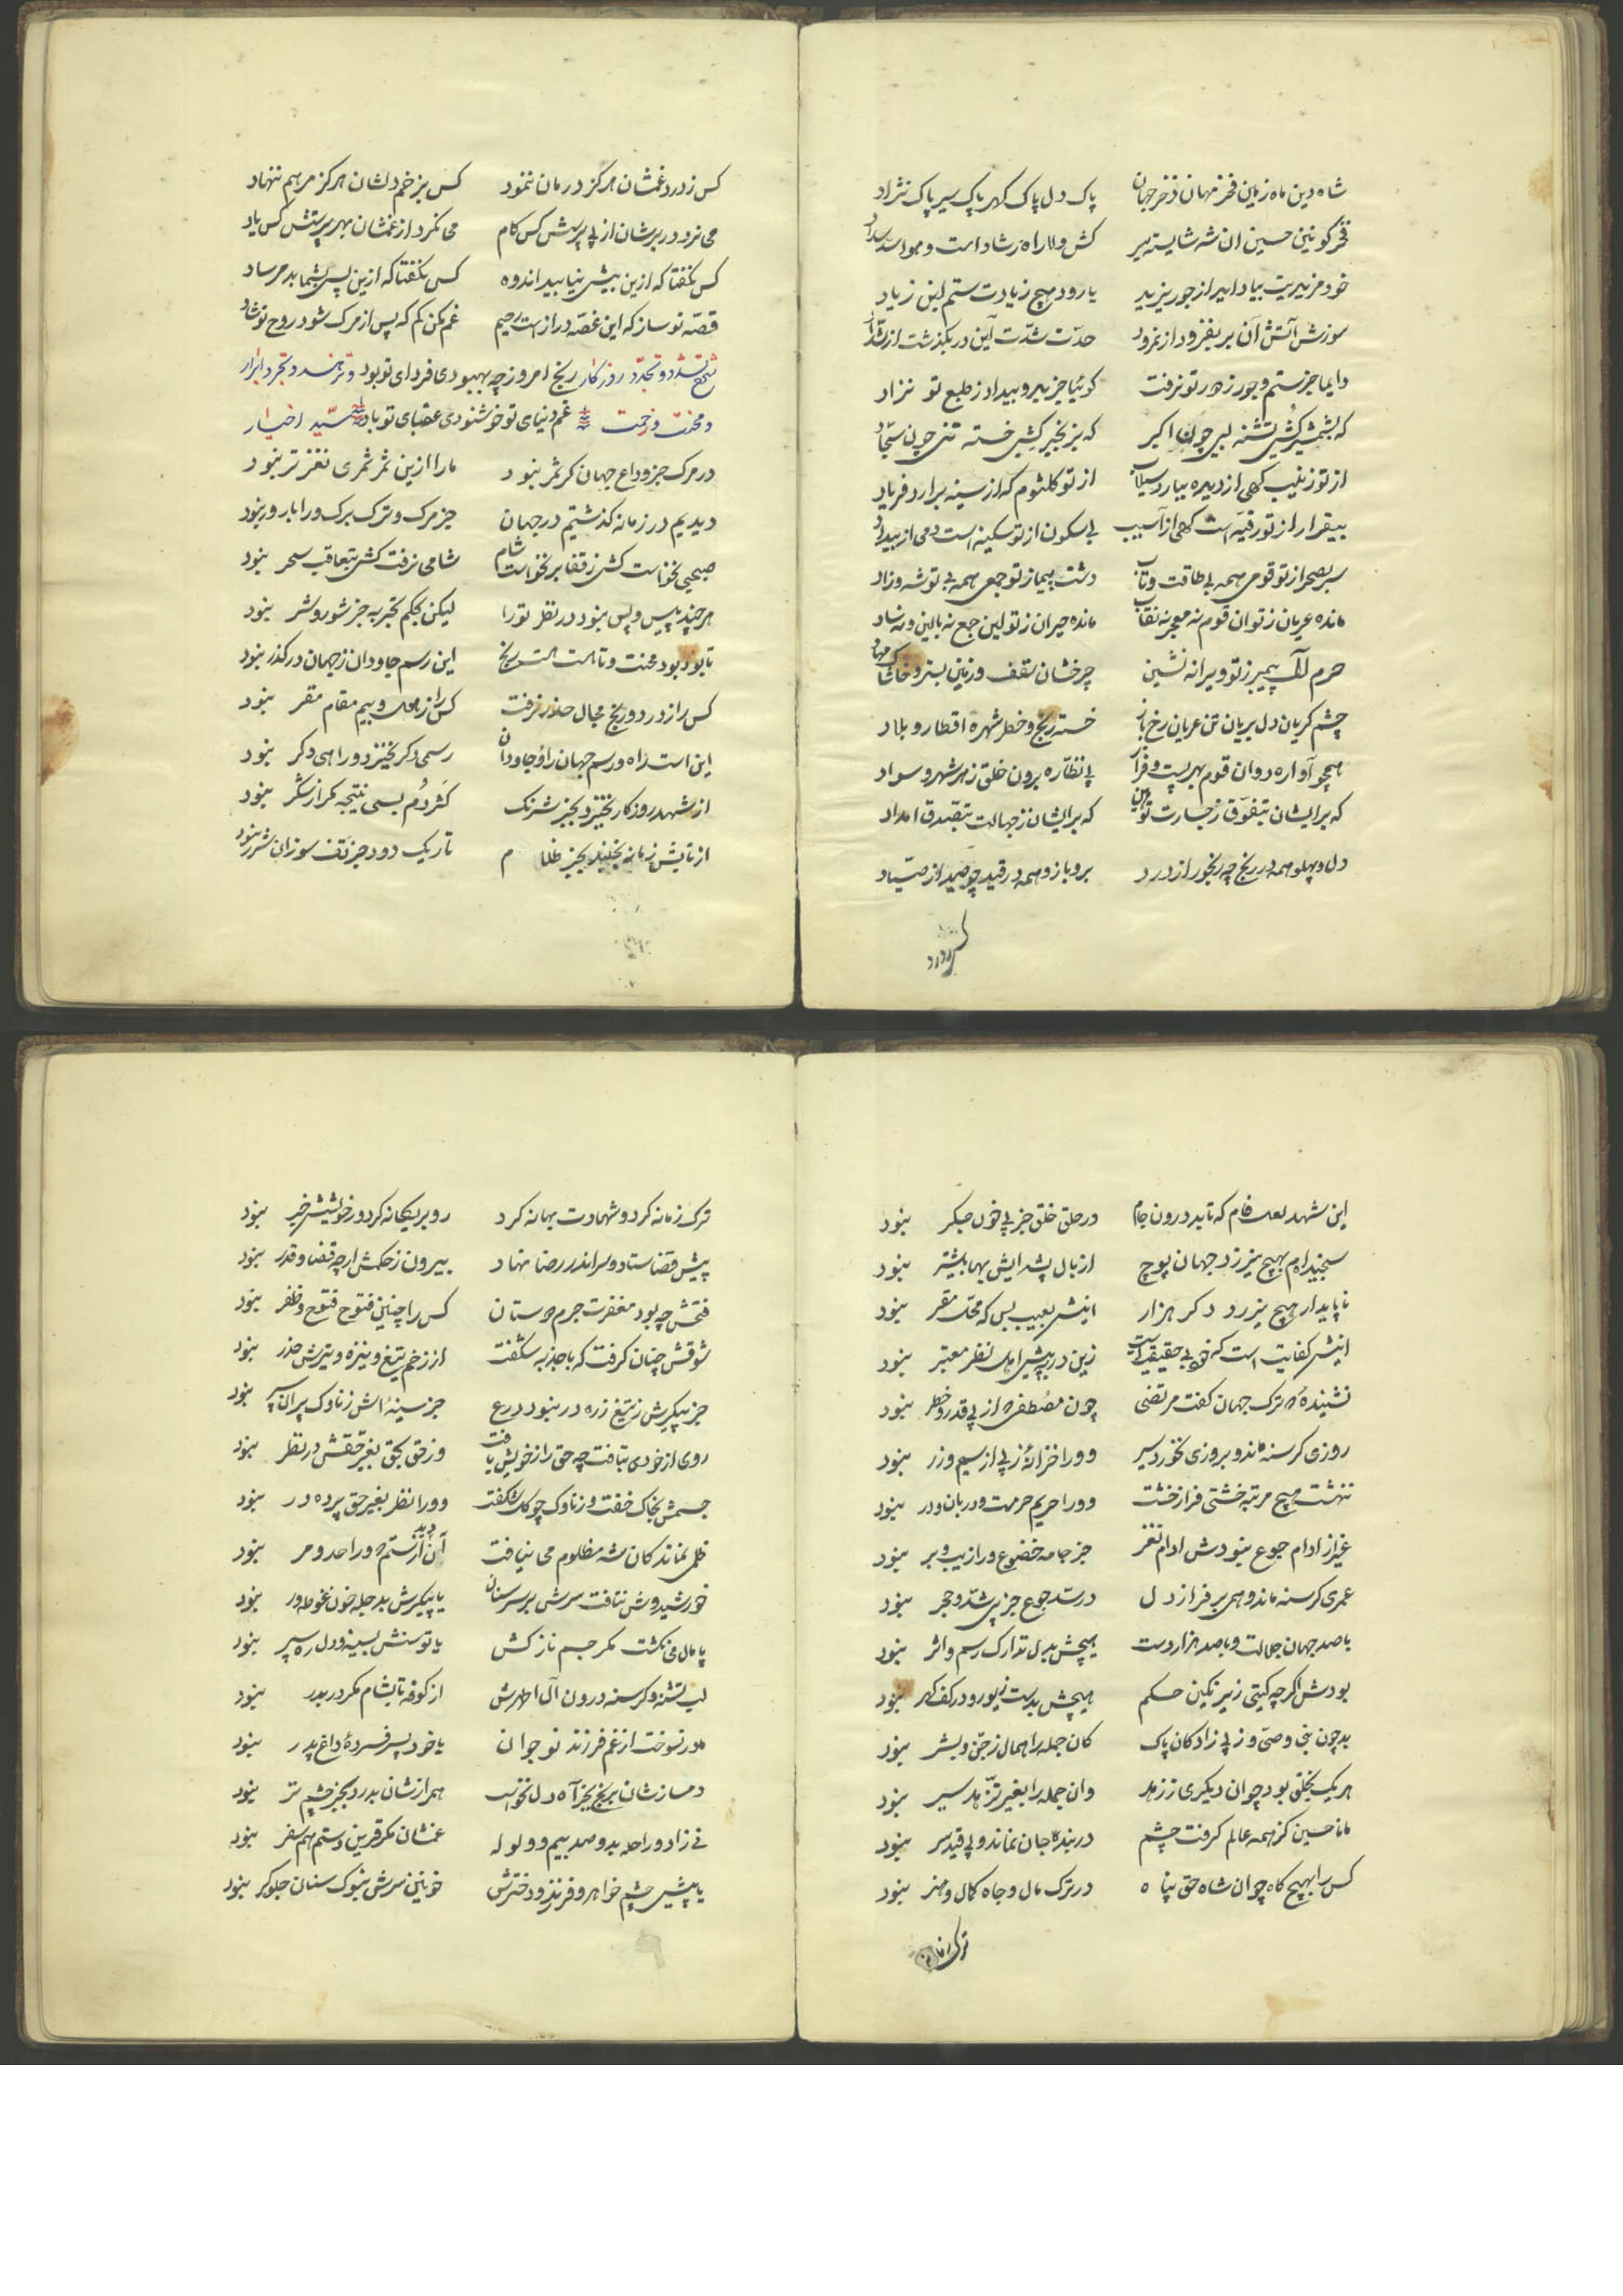 شاه دین ماه زمین فخر مهان ذخر جهان پاک دل پاک کهر پاک سیر پاک نژاد
فخر کونین حسین ان شه شایسته سیر کش ولا راه رشاد است و
خود مزیدیت بیداد ایدر از جور یزید یا رود هیچ زیادت ستم ابن زیاد
سوزش آتش آن بر بفزود از نمرود حدّت شدّت آین در بگذشت از شدّاد
دایما جز ستم و جور ز دور تو نرفت کوئیا جز بد و بیداد ز طبع تو نزاد
که بشمشیر کُشی تشنه لبی چون اکبر که بزنجیر کشی خسته تنی چون سجّاد
از تو زینب کهی از دیده ببارد سیلاب از تو کلثوم که از سینه برارد فریاد
بیقرار از تو رقیّه است کهی از آسیب بی سکون از تو سکینه است دمی از بیداد
سر بصحرا ز تو قومی همه بی طاقت و تاب دشت پیما ز تو جمعی همه بی توشه و زاد
مانده عریان ز تو ان قوم نه معجر نه نقاب مانده حیران ز تو این جمع نه بالین و نه
حرم آل پیمبر ز تو ویرانه نشین چرخشان سقف و زمین بستر و خاشاک مهاد
چشم کریان دل بریان تن عریان رخ باز خسته رنج و خطر شهره اقطار و بلاد
همچو آواره دوان قوم بهر پست و فراز بی نظّاره برون خلق ز هر شهر و سواد
که بر ایشان بتفوّق ز جسارت توهین که بر ایشان ز جهالت بتصدق امداد
دل و پهلو همه در رنج چه رنجور از درد بر و بازو همه در قید چو صید از صیّاد
کس ز درد
کس ز درد غمشان هرکز درمان ننمود کس بزخم دلشان هرکز مرهم ننهاد
می نزد در برشان از پی پرسش کس کام می نکرد از غمشان بهر پرستش کس یاد
کس نکفتا که ازین بیش نیابید اندوه کس نکفتا که ازین پس بشما بد مرساد
قصّه نو ساز که این غصّه دراز است رحیم غم مکن کم که پس از مرک شود روح تو شاد
تشدد و تجدّد روزکار رنج امروز چه بهبودی فردای تو بود و تزهد و تجرد ابرار
و محنت و زحمت غم دنیای تو خوشنودی عقبای تو باد سیّد اخیار
در مرک جز وداع جهان کر ثمر نبود ما را ازین ثمر ثمری نغزتر نبود
دیدیم در زمانه کذشتیم در جهان جز مرک و ترک برک ورا بار و بر نبود
صبحی نخواست کش ز قفا بر نخواست شام شامی نرفت کش بتعاقب سحر نبود
هرچند پیس و پس بنود در نظر تو را لیکن بحکم تجربه جز شور و شر نبود
تا بود بود محنت و تا هست هست رنج این رسم جاودان ز جهان در کذر نبود
کس را ز درد و رنج مجال حذر نرفت کس را ز هول و بیم مقام مقر نبود
این است راه و رسم جهان را و جاودان رسمی دکر نخیزد و راهی دکر نبود
از شهد روزکار نخیزد بجز شرنک کژدم بسی نتیجه مکر از شکر نبود
از تابش زمانه نخیزد بجز ظلام تاریک دود جز تف سوزان شرر نبود
این شهد لعل فام که تابد درون جام در حلق خلق جز پی خون جکر نبود
سنجیده‌ام بهیچ نیرزد جهان پوچ از بال پشه ایش بها بیشتر نبود
ناپایدار هیچ نیرزد دکر هزار اینش بعیب بس که محلّ مقر نبود
اینش کفایت است که بی حقیقت است زین در به پیش اهل نظر معتبر نبود
نشنیدهٔ ترک جهان کفت مرتضی چون مصطفی از پی قدر و خطر نبود
روزی کرسنه ماند و بروزی نخورد سیر وورا خزانه زپی از سیم و زر نبود
ننهشت هیچ مرتبه خشتی فراز خشت وورا حریم حرمت و دربان و در نبود
غیر از ادام جوع نبودش ادام نغز جز جامه خضوع ورا زیب و بر نبود
عمری کرسنه ماند و همی بر فراز دل در سدّ جوع جز پی شدّ و حجر نبود
با صد جهان جلالت و با صد هزار دست هیچش بدل تدارک رسم و اثر نبود
بودش اکرچه کیتی زیر نکین حکم هیچش بدست زیور و در کف کهر نبود
بد چون نبی وصیّ و ز پی زادکان پاک کان جمله را همال ز جنّ و بشر نبود
هر یک بخلق بود چو ان دیکری ز زهد وان جمله را بغیر تزّهد سیر نبود
مانا حسین کز همه عالم کرفت چشم در بند جان نماند و پی قید سر نبود
کس را بهیچ کاه چو ان شاه حق پناه در ترک مال و جاه کمال و هنر نبود
ترک زمانه
ترک زمانه کرد و شهادت بهانه کرد رو بر یکانه کرد و ز خویشش خبر نبود
پیش قضا ستاد و سر اندر رضا نهاد بیرون ز حکمش ارچه قضا و قدر نبود
فتحش چه بود مغفرت جرم دوستان کس را چنین فتوح فتوح و ظفر نبود
شوقش چنان کرفت که با جذبه شکفت از زخم تیغ و نیزه و تیرش حذر نبود
جز پیکرش ز تیغ زره در نبود درع جز سینه‌اش ز ناوک پران سپر نبود
روی از خودی بتافت چه حق را ز خویش یافت وز حق بحق بغیر حقش در نظر نبود
جسمش بخاک خفت و ز ناوک چو کل شکفت وورا نظر بغیر حق پرده در نبود
ظلمی نماند کان شه مظلوم می نیافت آن دید از ستم که ورا حد و مر نبود
خورشیدوش نتافت سرش بر سر سنان یا پیکرش بدجله خون غوطه‌ور نبود
پامال می نکشت مکر جسم نازکش یا توسنش بسینه و دل ره سپر نبود
لب تشنه و کرسنه درون آل اطهرش از کوفه تا بشام مکر دربدر نبود
مادر نسوخت از غم فرزند نوجوان یا خود پسر فسردهٔ داغ پدر نبود
دمسازشان برنج بجز آه دل نخواست همرازشان بدرد بجز چشم تر نبود
نی زاد و راحله بد و صد بیم و ولوله غمشان مکر قرین و ستم هم سفر نبود
یا پیش چشم خواهر و فرزند و دخترش خونین سرش بنوک سنان جلوه‌کر نبود